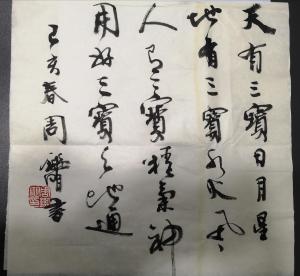 天有三寳日月星
地有三寳水火風
人有三寳精氣神
用好三寳天地通
己亥春周 書